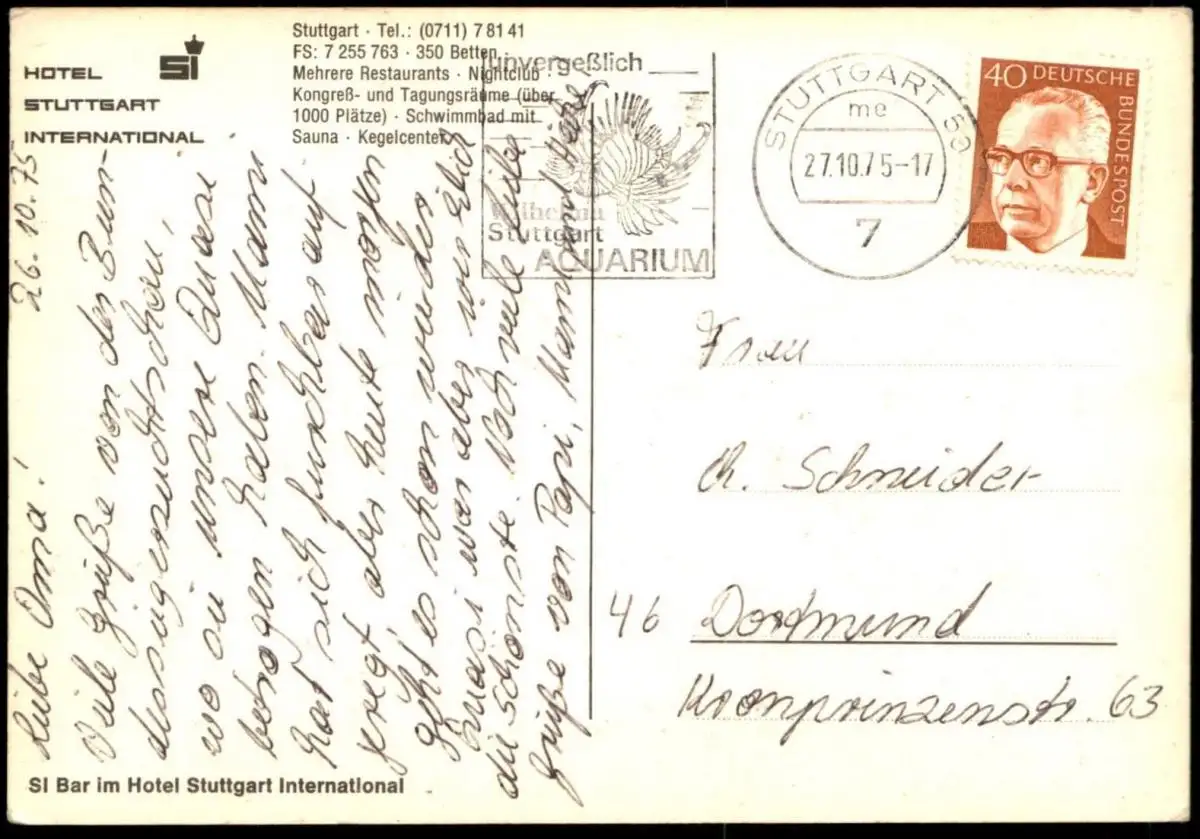 HOTEL SI
STUTTGART
INTERNATIONAL
Stuttgart · Tel.: (0711) 7 81 41
FS: 7 255 763 · 350 Betten
Mehrere Restaurants · Nightclub ·
Kongreß- und Tagungsräume (über
1000 Plätze) · Schwimmbad mit
Sauna · Kegelcenter
unvergeßlich
Wilhelma
Stuttgart
AQUARIUM
STUTTGART 53
me
27.10.75-17
7
40 DEUTSCHE
BUNDESPOST
26.10.75
Liebe Oma!
Viele Grüße von der Bun-
dessiegerzuchtschau,
wo wir unsere
bezogen haben. Mami
hat sich furchtbar auf
geregt aber heute morgen
geht es schon wieder
war aber wie Elid
die Schönste. Noch viele liebe
Grüße von Papi, Mami und Heike
Frau
A. Schneider
46 Dortmund
Kronprinzenstr. 63
SI Bar im Hotel Stuttgart International